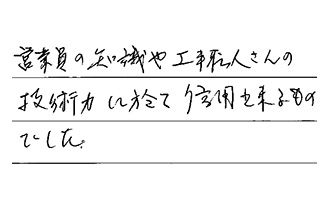 営業員の知識や工事職人さんの
技術力に於て信用出来るもの
でした。